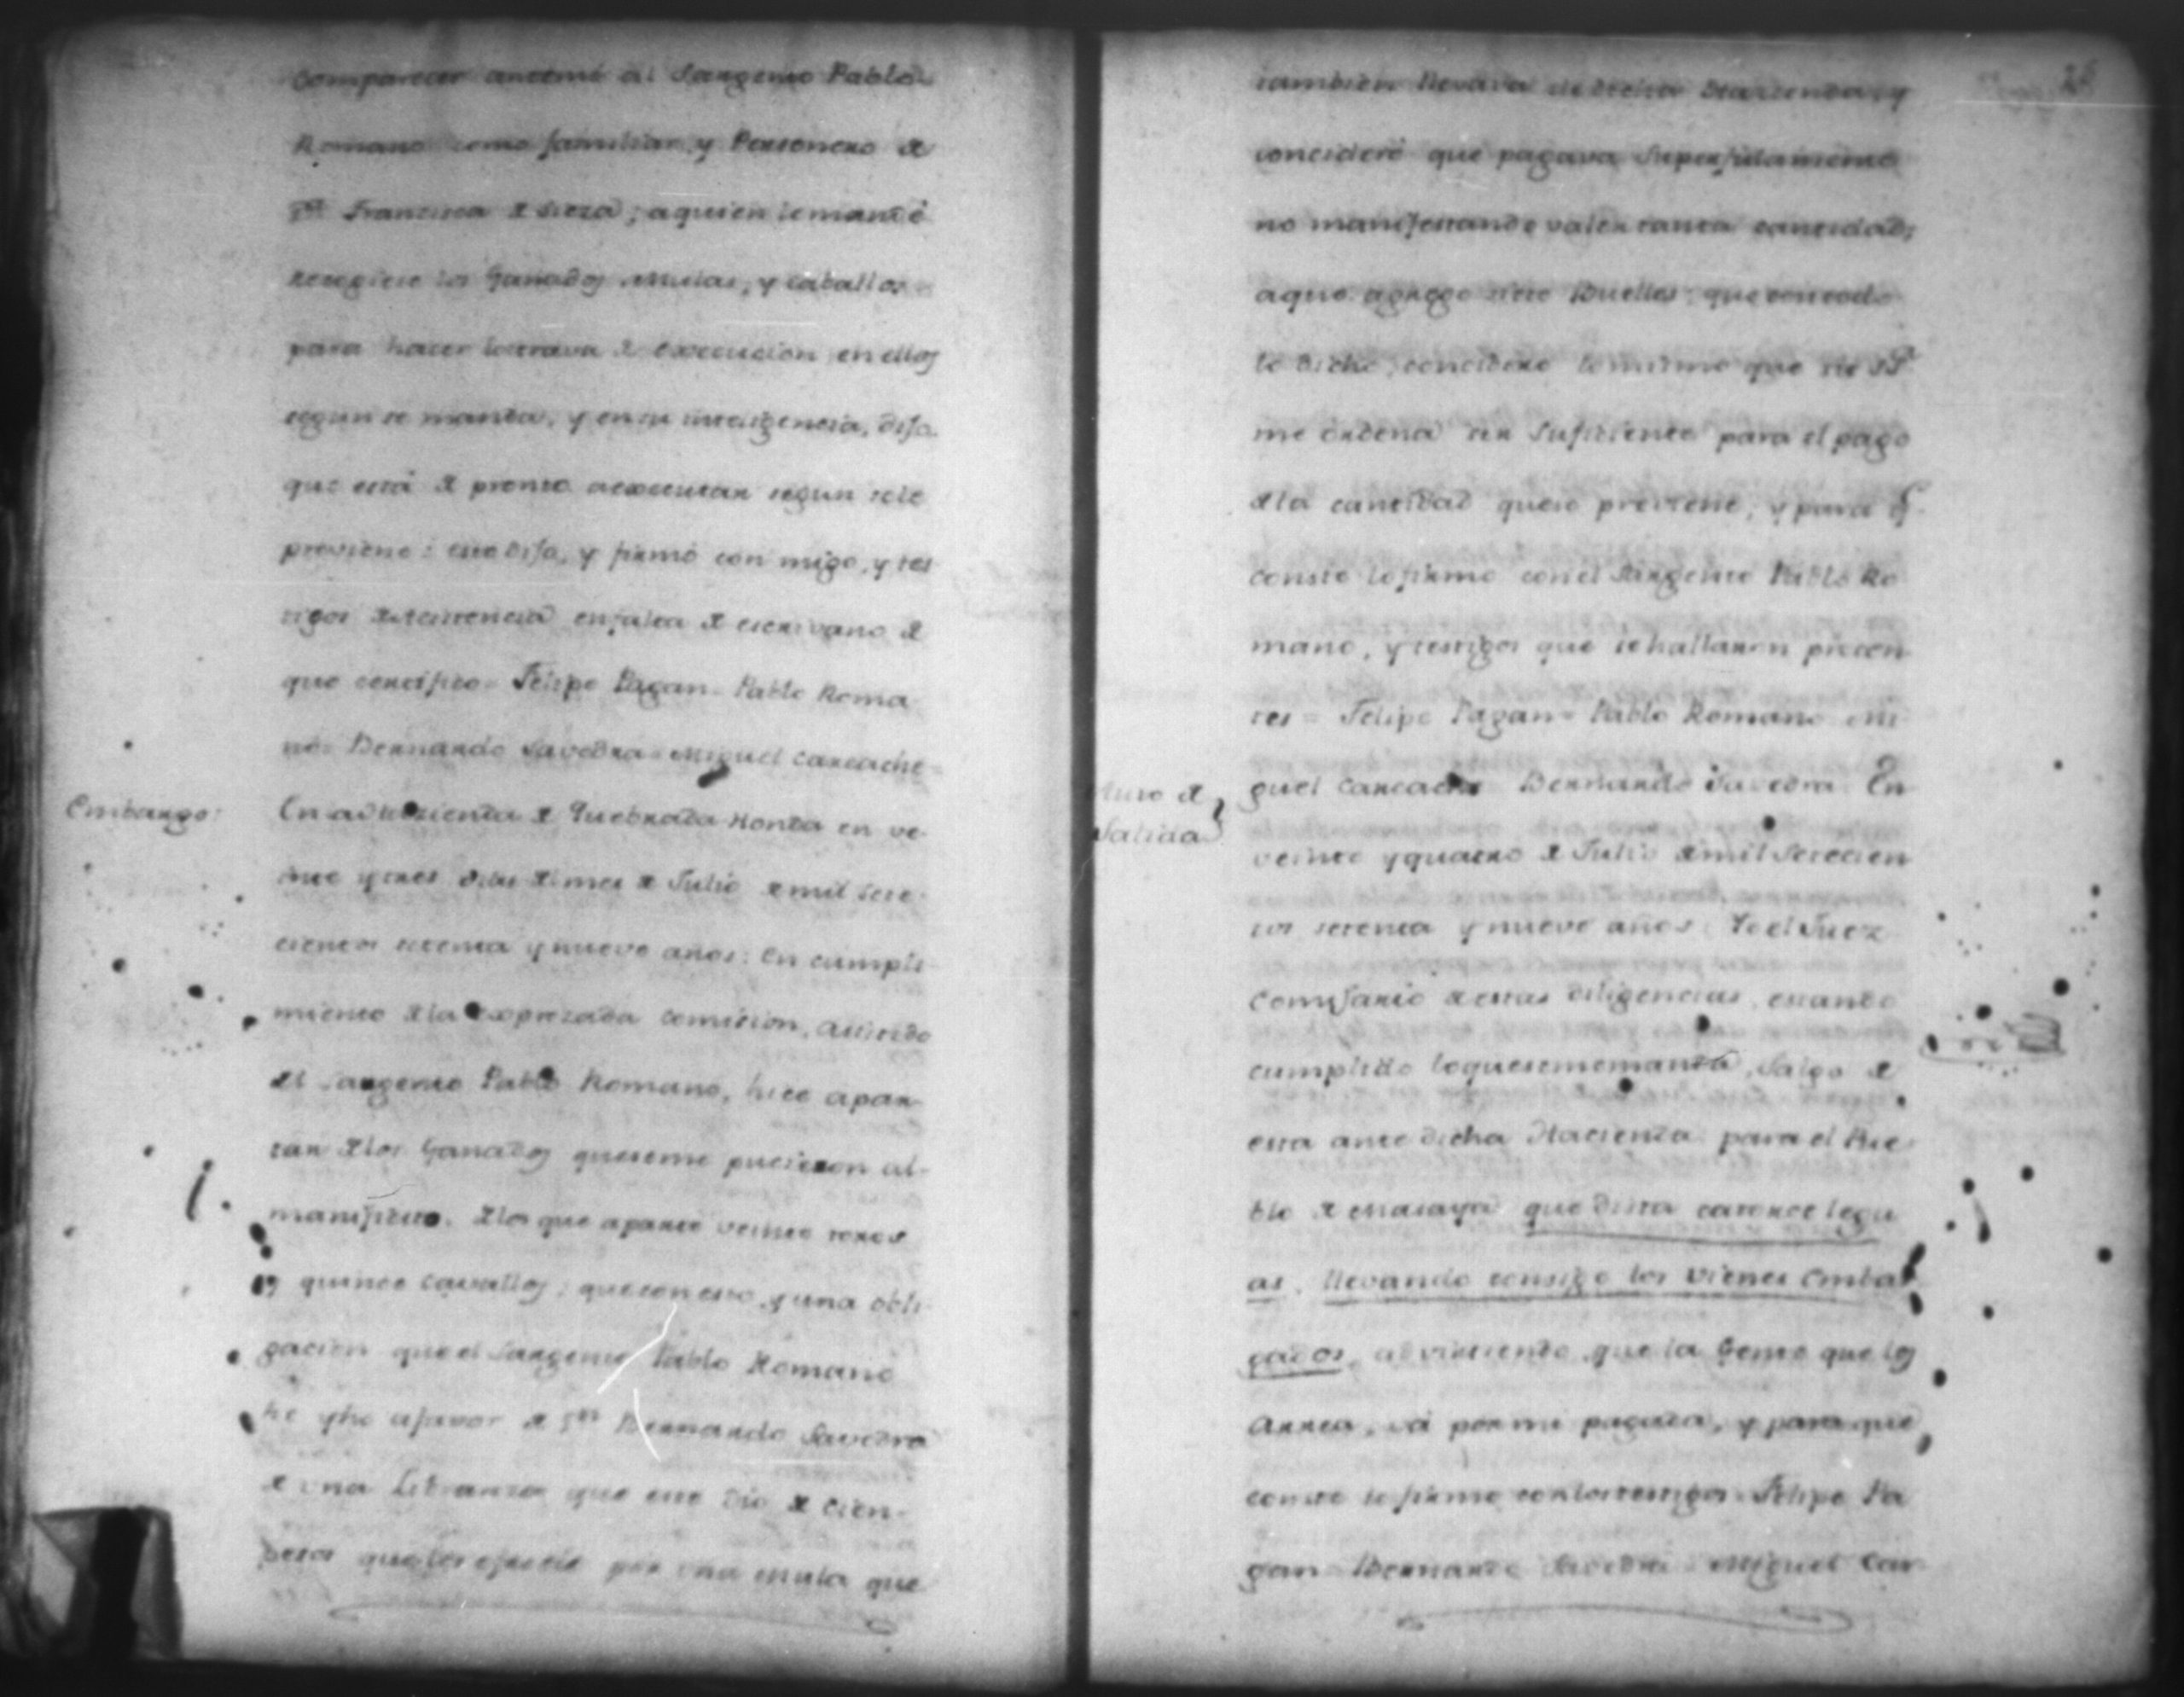 comparecer antemi al Sargento Pablo
Romano como familiar, y Personero de
Dª Francisca de Sieza; aquien le mandé
recogiese los Ganados Mulas, y caballos
para hacer la trava de execucion en ellos
segun se manda, y en su inteligencia, dijo
que está de pronto aexecutar segun sele
previene: esto dijo, y firmó con migo, y tes
tigos de asistencia en falta de escrivano de
que certifico = Felipe Pagan = Pablo Roma
no = Bernardo Savedra = Miguel Carcache =
Embargo:
En la Hazienda de Quebrada Honda en ve-
inte y tres dias del mes de Julio de mil sete-
cientos setenta y nueve años: En cumpli-
miento de la expresada comision, asistido
del Sargento Pablo Romano, hice apar-
tar de los Ganados que seme pucieron al
manifiesto. de los que aparto veinte toros
y quince cavallos; que con esto, y una obli-
gacion que el Sargento Pablo Romano
hé yho afavor de Dn Bernardo Savedra
de una Libranza que este dio de cien
pesos que les ofrecio por una mula que
26
tambien llevava de dicha Hacienda, y
concideré que pagava Superfulamente
no manifestando valer tanta cantidad;
aque agrego siete Bueltes; que con todo
lo dicho, concidero lo mismo que de Sª
me ordena ser Suficiente para el pago
de la cantidad que se previene, y para q̃
conste lo firmo con el Sargento Pablo Ro
mano, y testigos que se hallaron presen
tes = Felipe Pagan = Pablo Romano = Mi
Auto de
Salida
guel Carcache = Bernardo Savedra = En
veinte y quatro de Julio de mil Setecien
tos setenta y nueve años: Yo el Juez
Comisario de estas diligencias, estando
cumplido loquesememanda, Salgo de
esta ante dicha Hacienda para el Pue
blo de Masaya que dista catorce legu
as, llevando consigo los vienes Embar
gados, advirtiendo que la Gente que los
Arrea, vá por mi pagada, y para que
conste lo firmo con los testigos = Felipe Pa
gan = Bernardo Savedra = Miguel Car